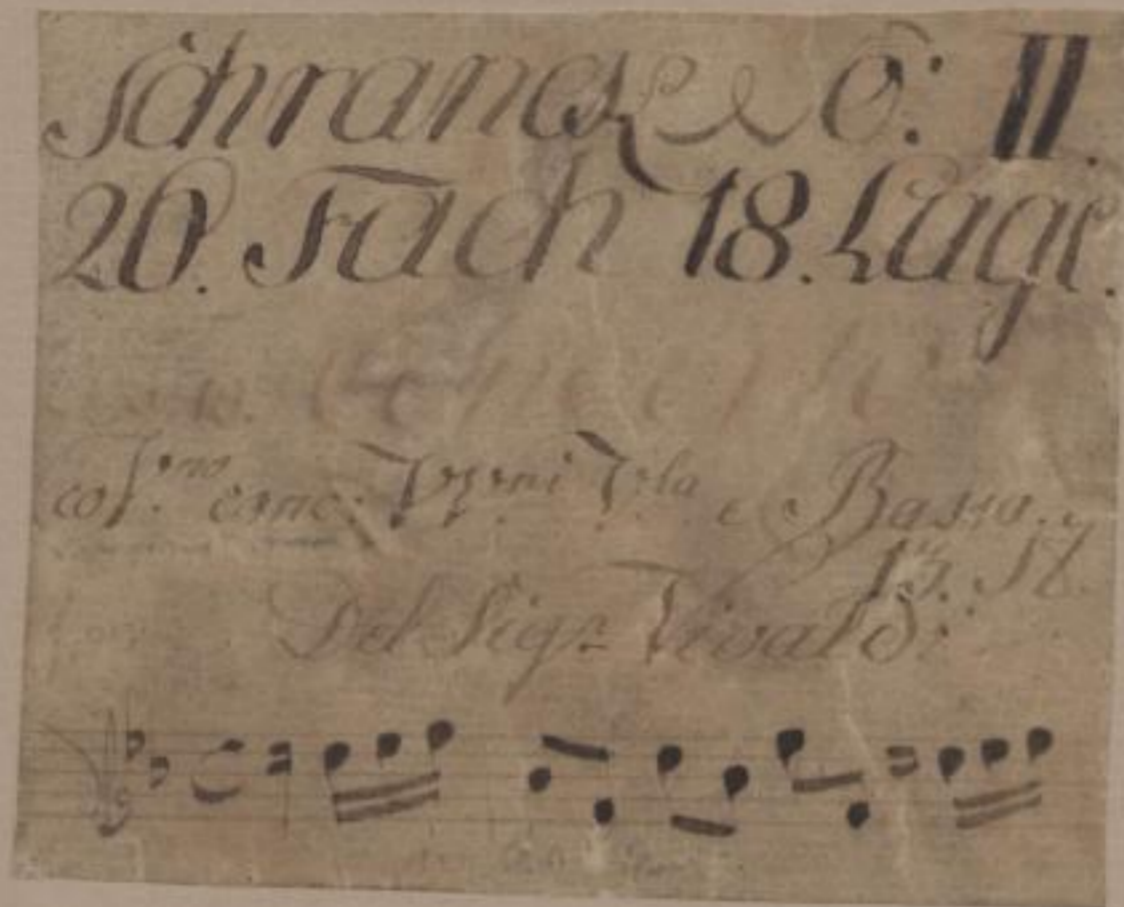 Schranck No: II.
20. Fach 18. Lage.
Concerti
co V.no conc: VV.ni V.la e Basso.
Del Sigr. Vivaldi.